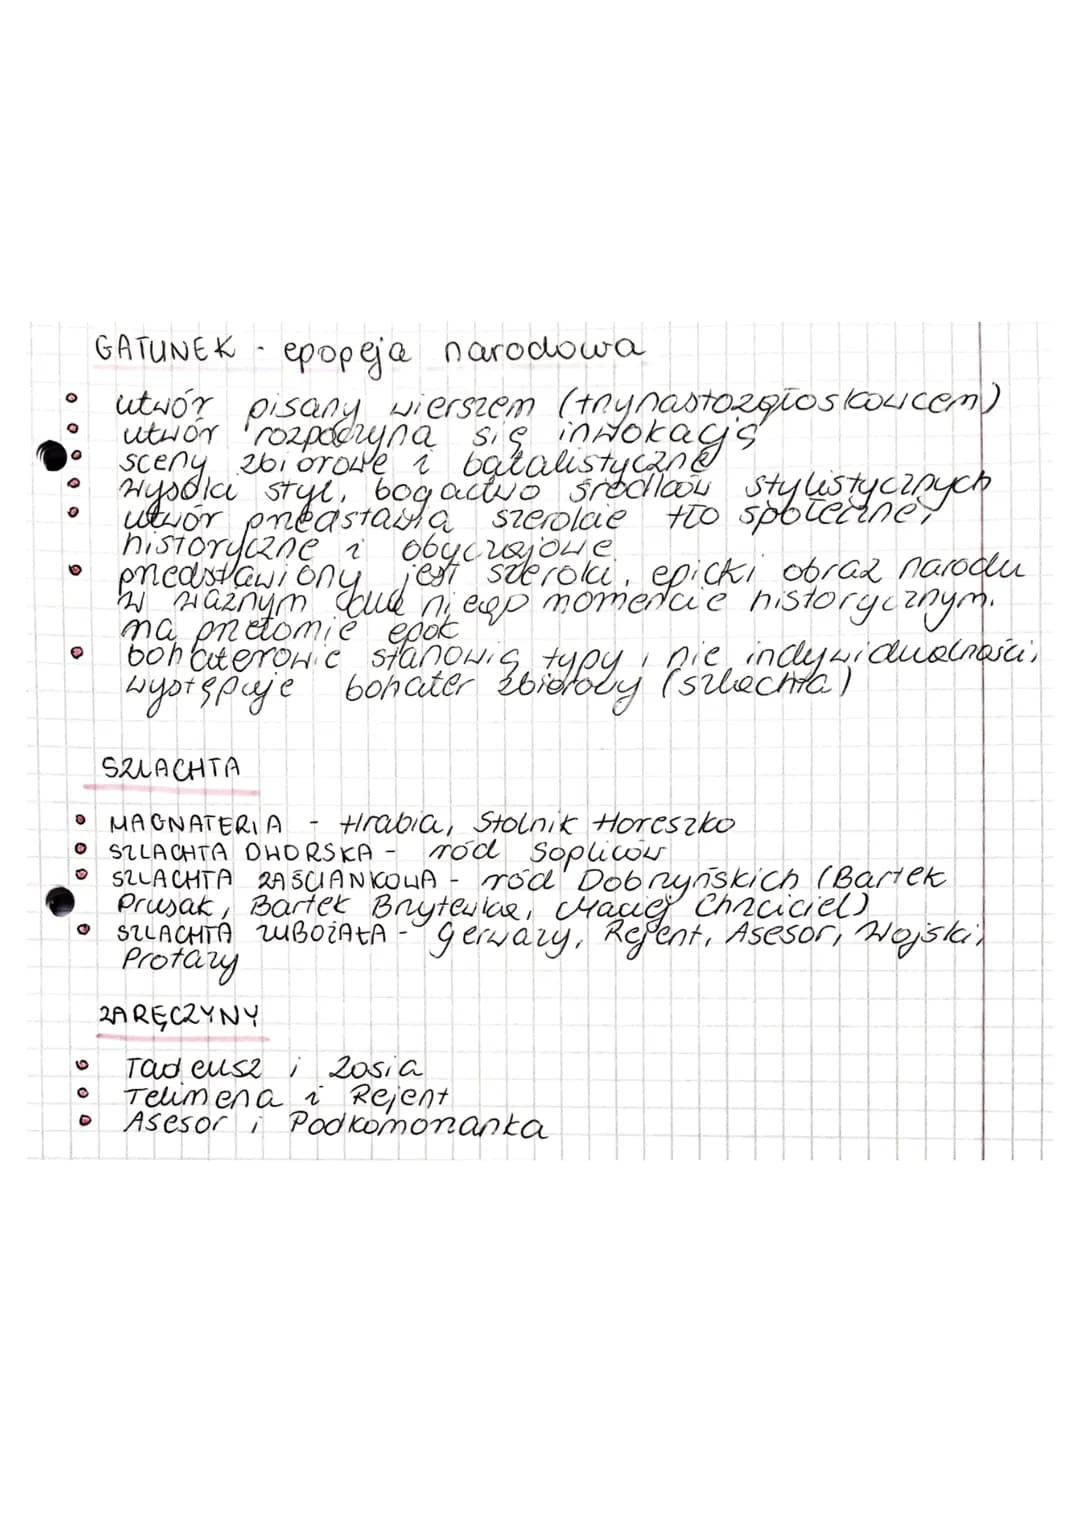 GATUNEK - epopeja narodowa
utwór pisany wierszem (trzynastozgłoskowcem)
utwór rozpoczyna się inwokacją
sceny zbiorowe i batalistyczne
wysoki styl, bogactwo środków stylistycznych
utwór przedstawia szerokie tło społeczne,
historyczne i obyczajowe
przedstawiony jest szeroki, epicki obraz narodu
w ważnym dla niego momencie historycznym.
na przełomie epok
bohaterowie stanowią typy, nie indywidualności,
występuje bohater zbiorowy (szlachta)
SZLACHTA
MAGNATERIA - Hrabia, Stolnik Horeszko
SZLACHTA DWORSKA - ród Sopliców
SZLACHTA ZAŚCIANKOWA - ród Dobrzyńskich (Bartek
Prusak, Bartek Brzytewka, Maciej Chrzciciel)
SZLACHTA ZUBOŻAŁA - Gerwazy, Rejent, Asesor, Wojski,
Protazy
ZARĘCZYNY
Tadeusz i Zosia
Telimena i Rejent
Asesor i Podkomorzanka